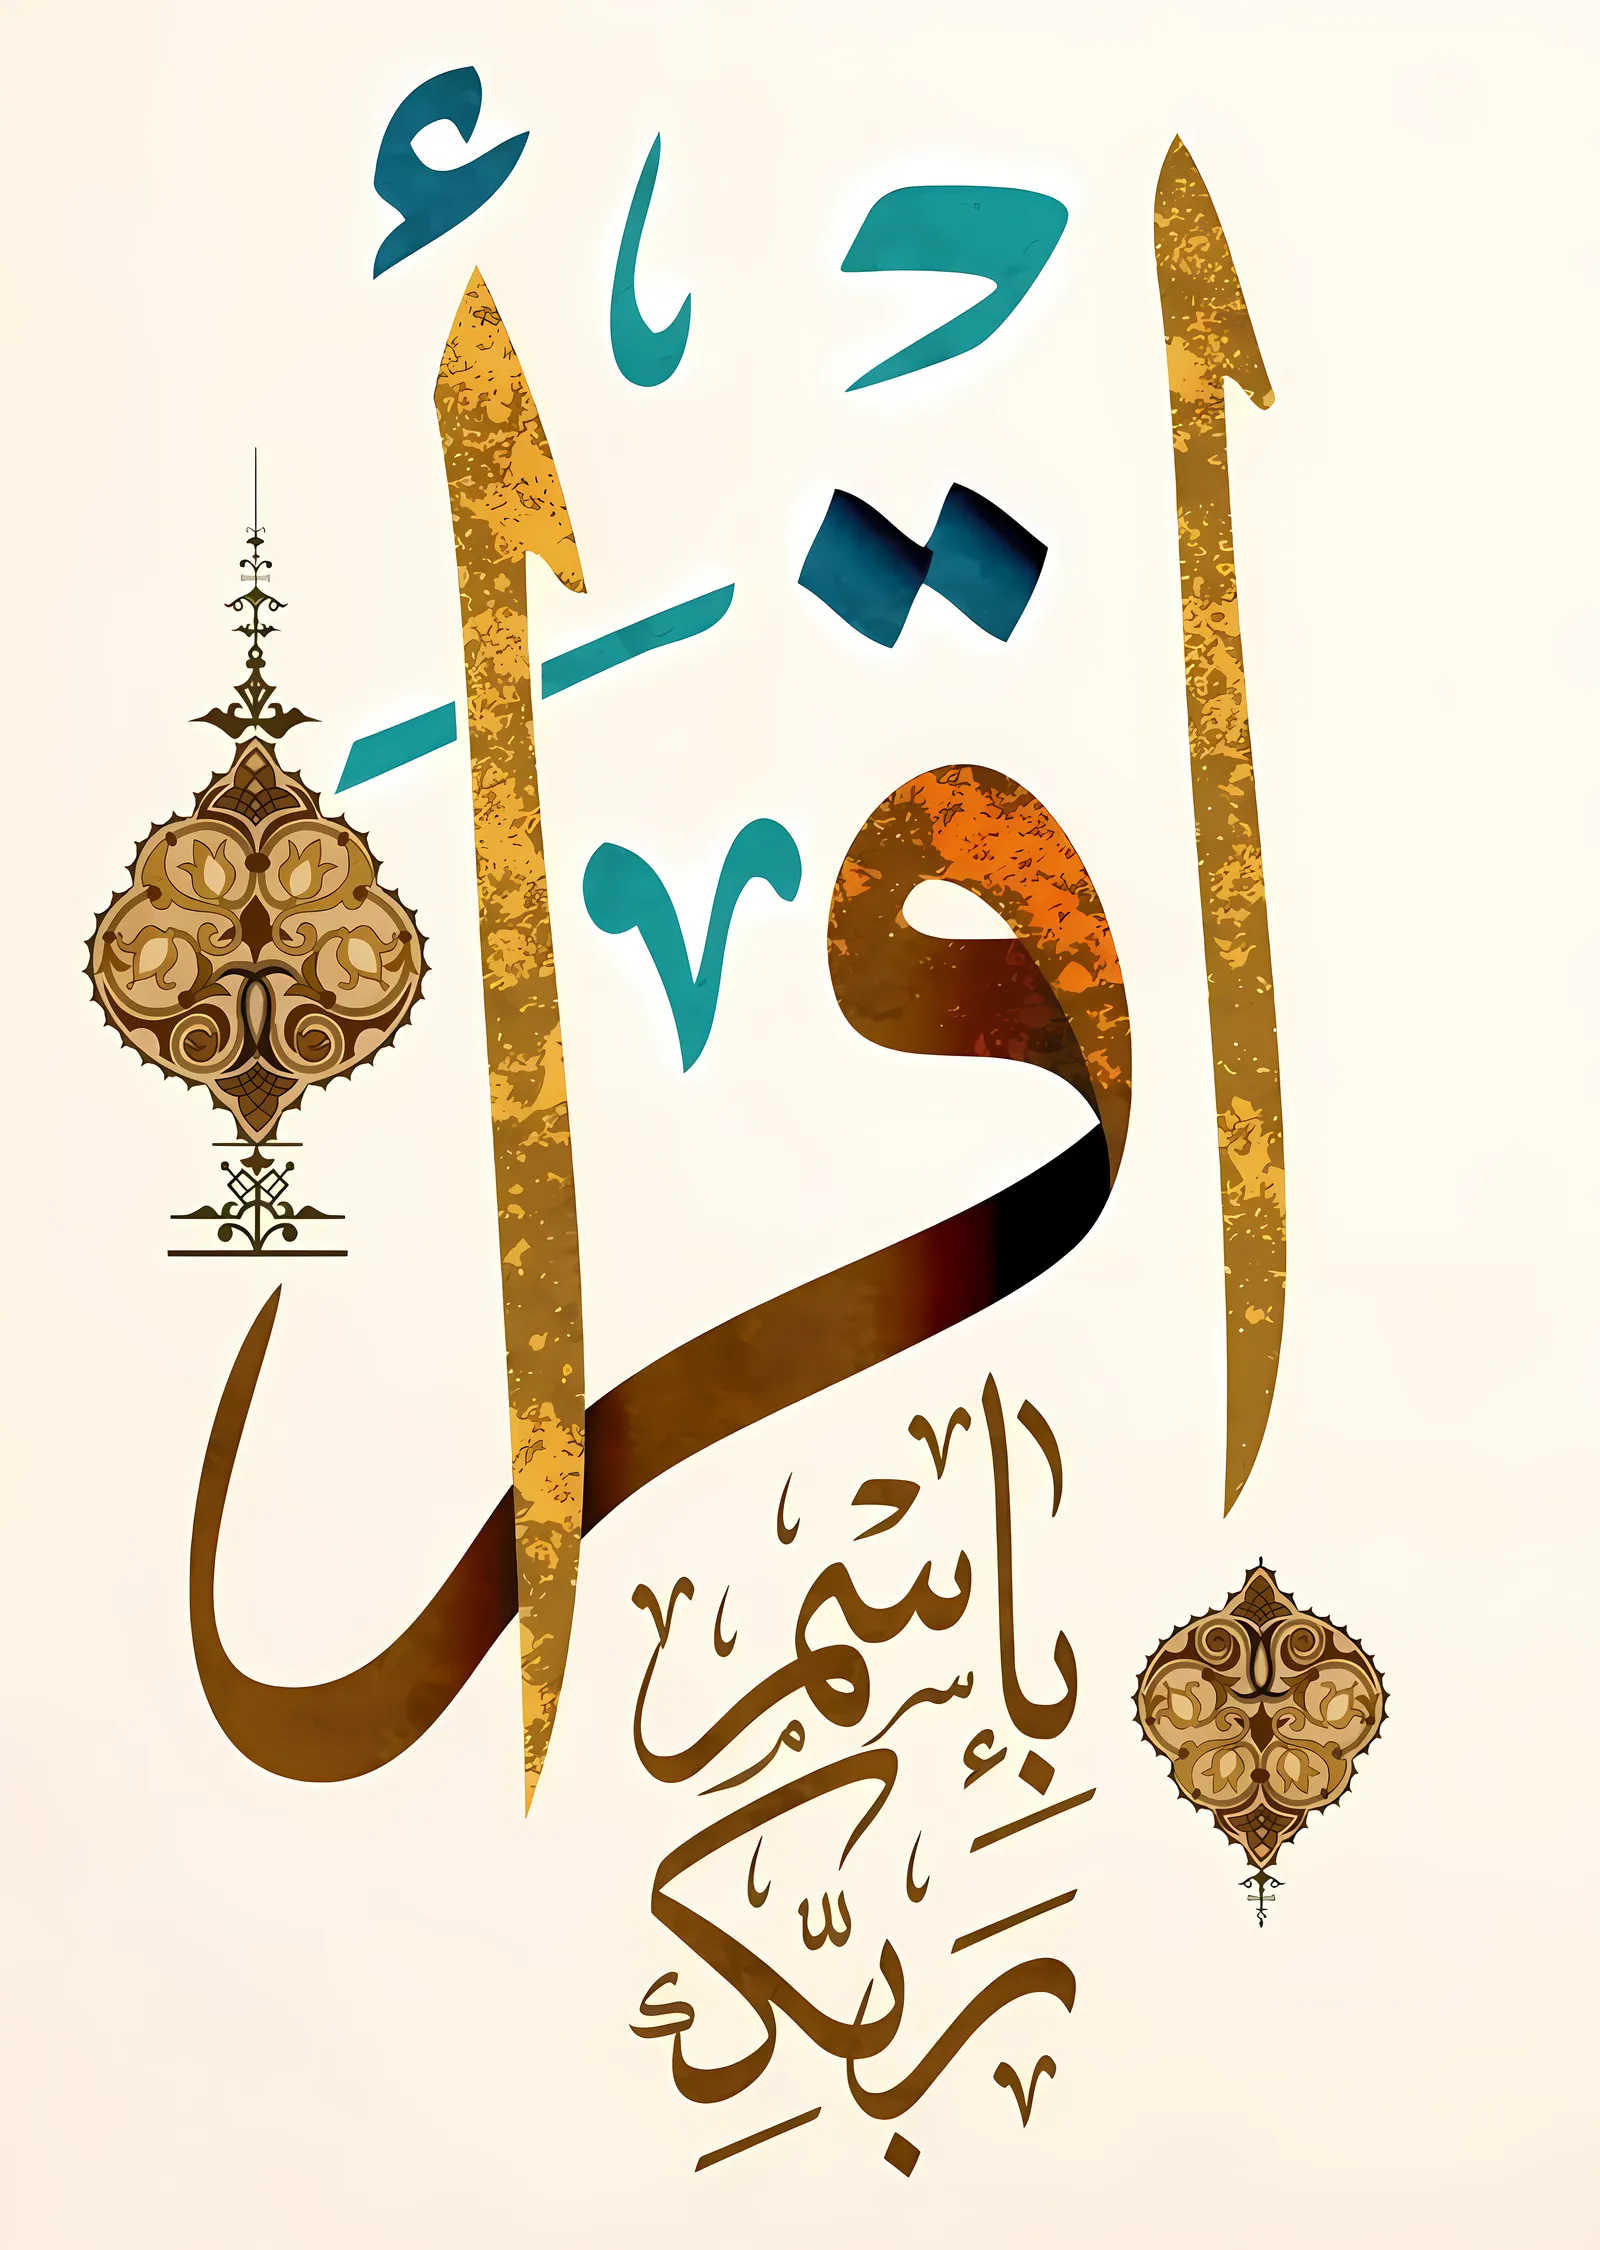 اقْرَأْ
بِإِسْمِ
رَبِّكَ